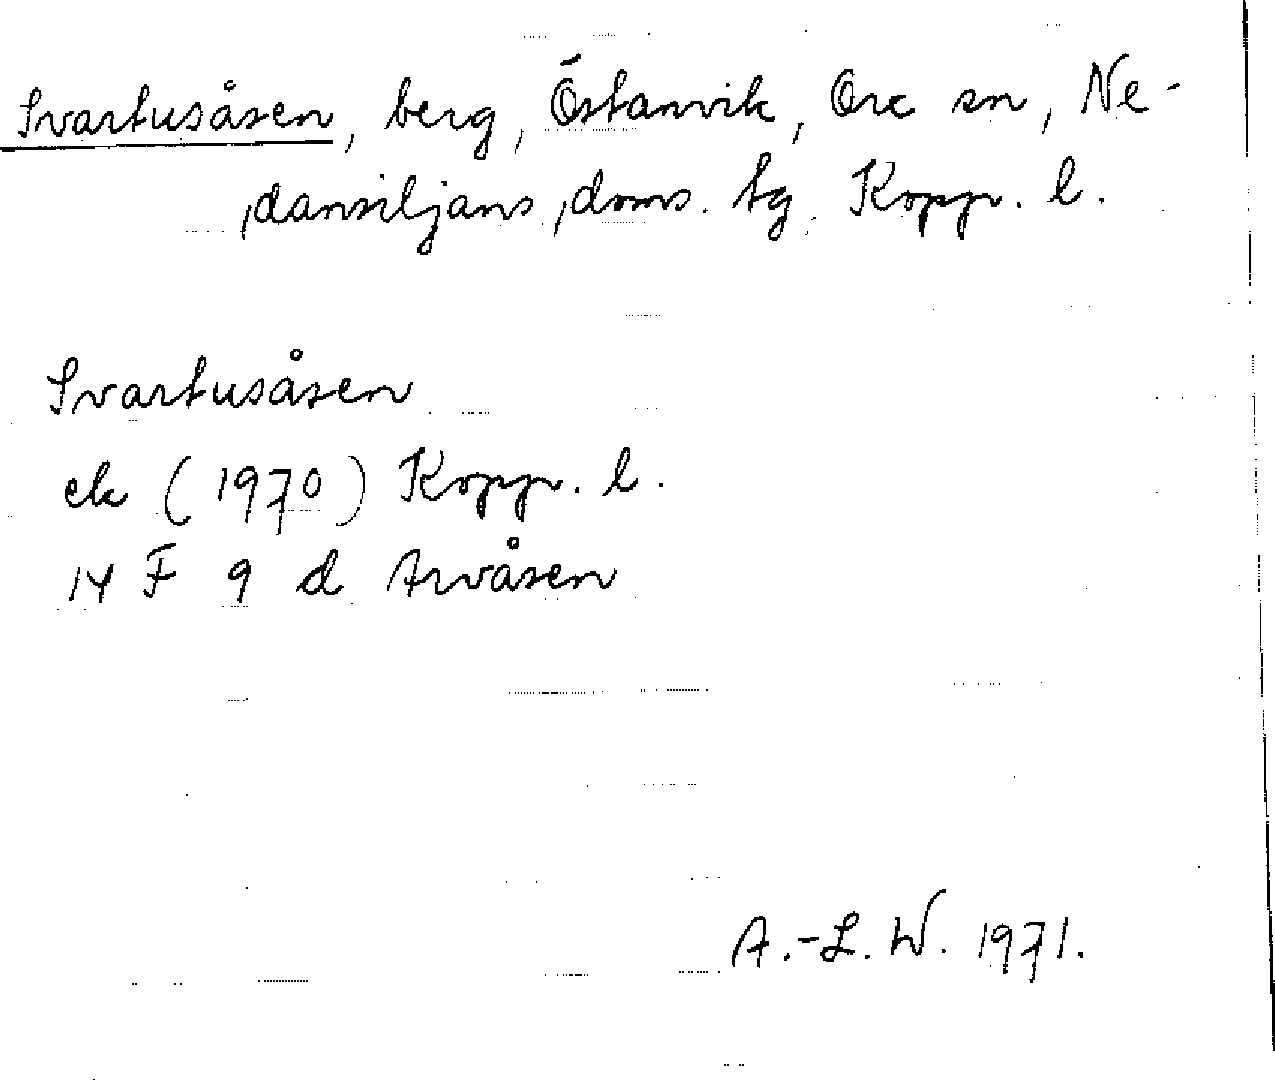 Svartusåsen, berg, Östanvik, Ore sn, Ne-
dansiljans doms. tg. Kopp. l.
Svartusåsen
ek (1970) Kopp. l.
14 F 9 d Arvåsen
A.-L. W. 1971.